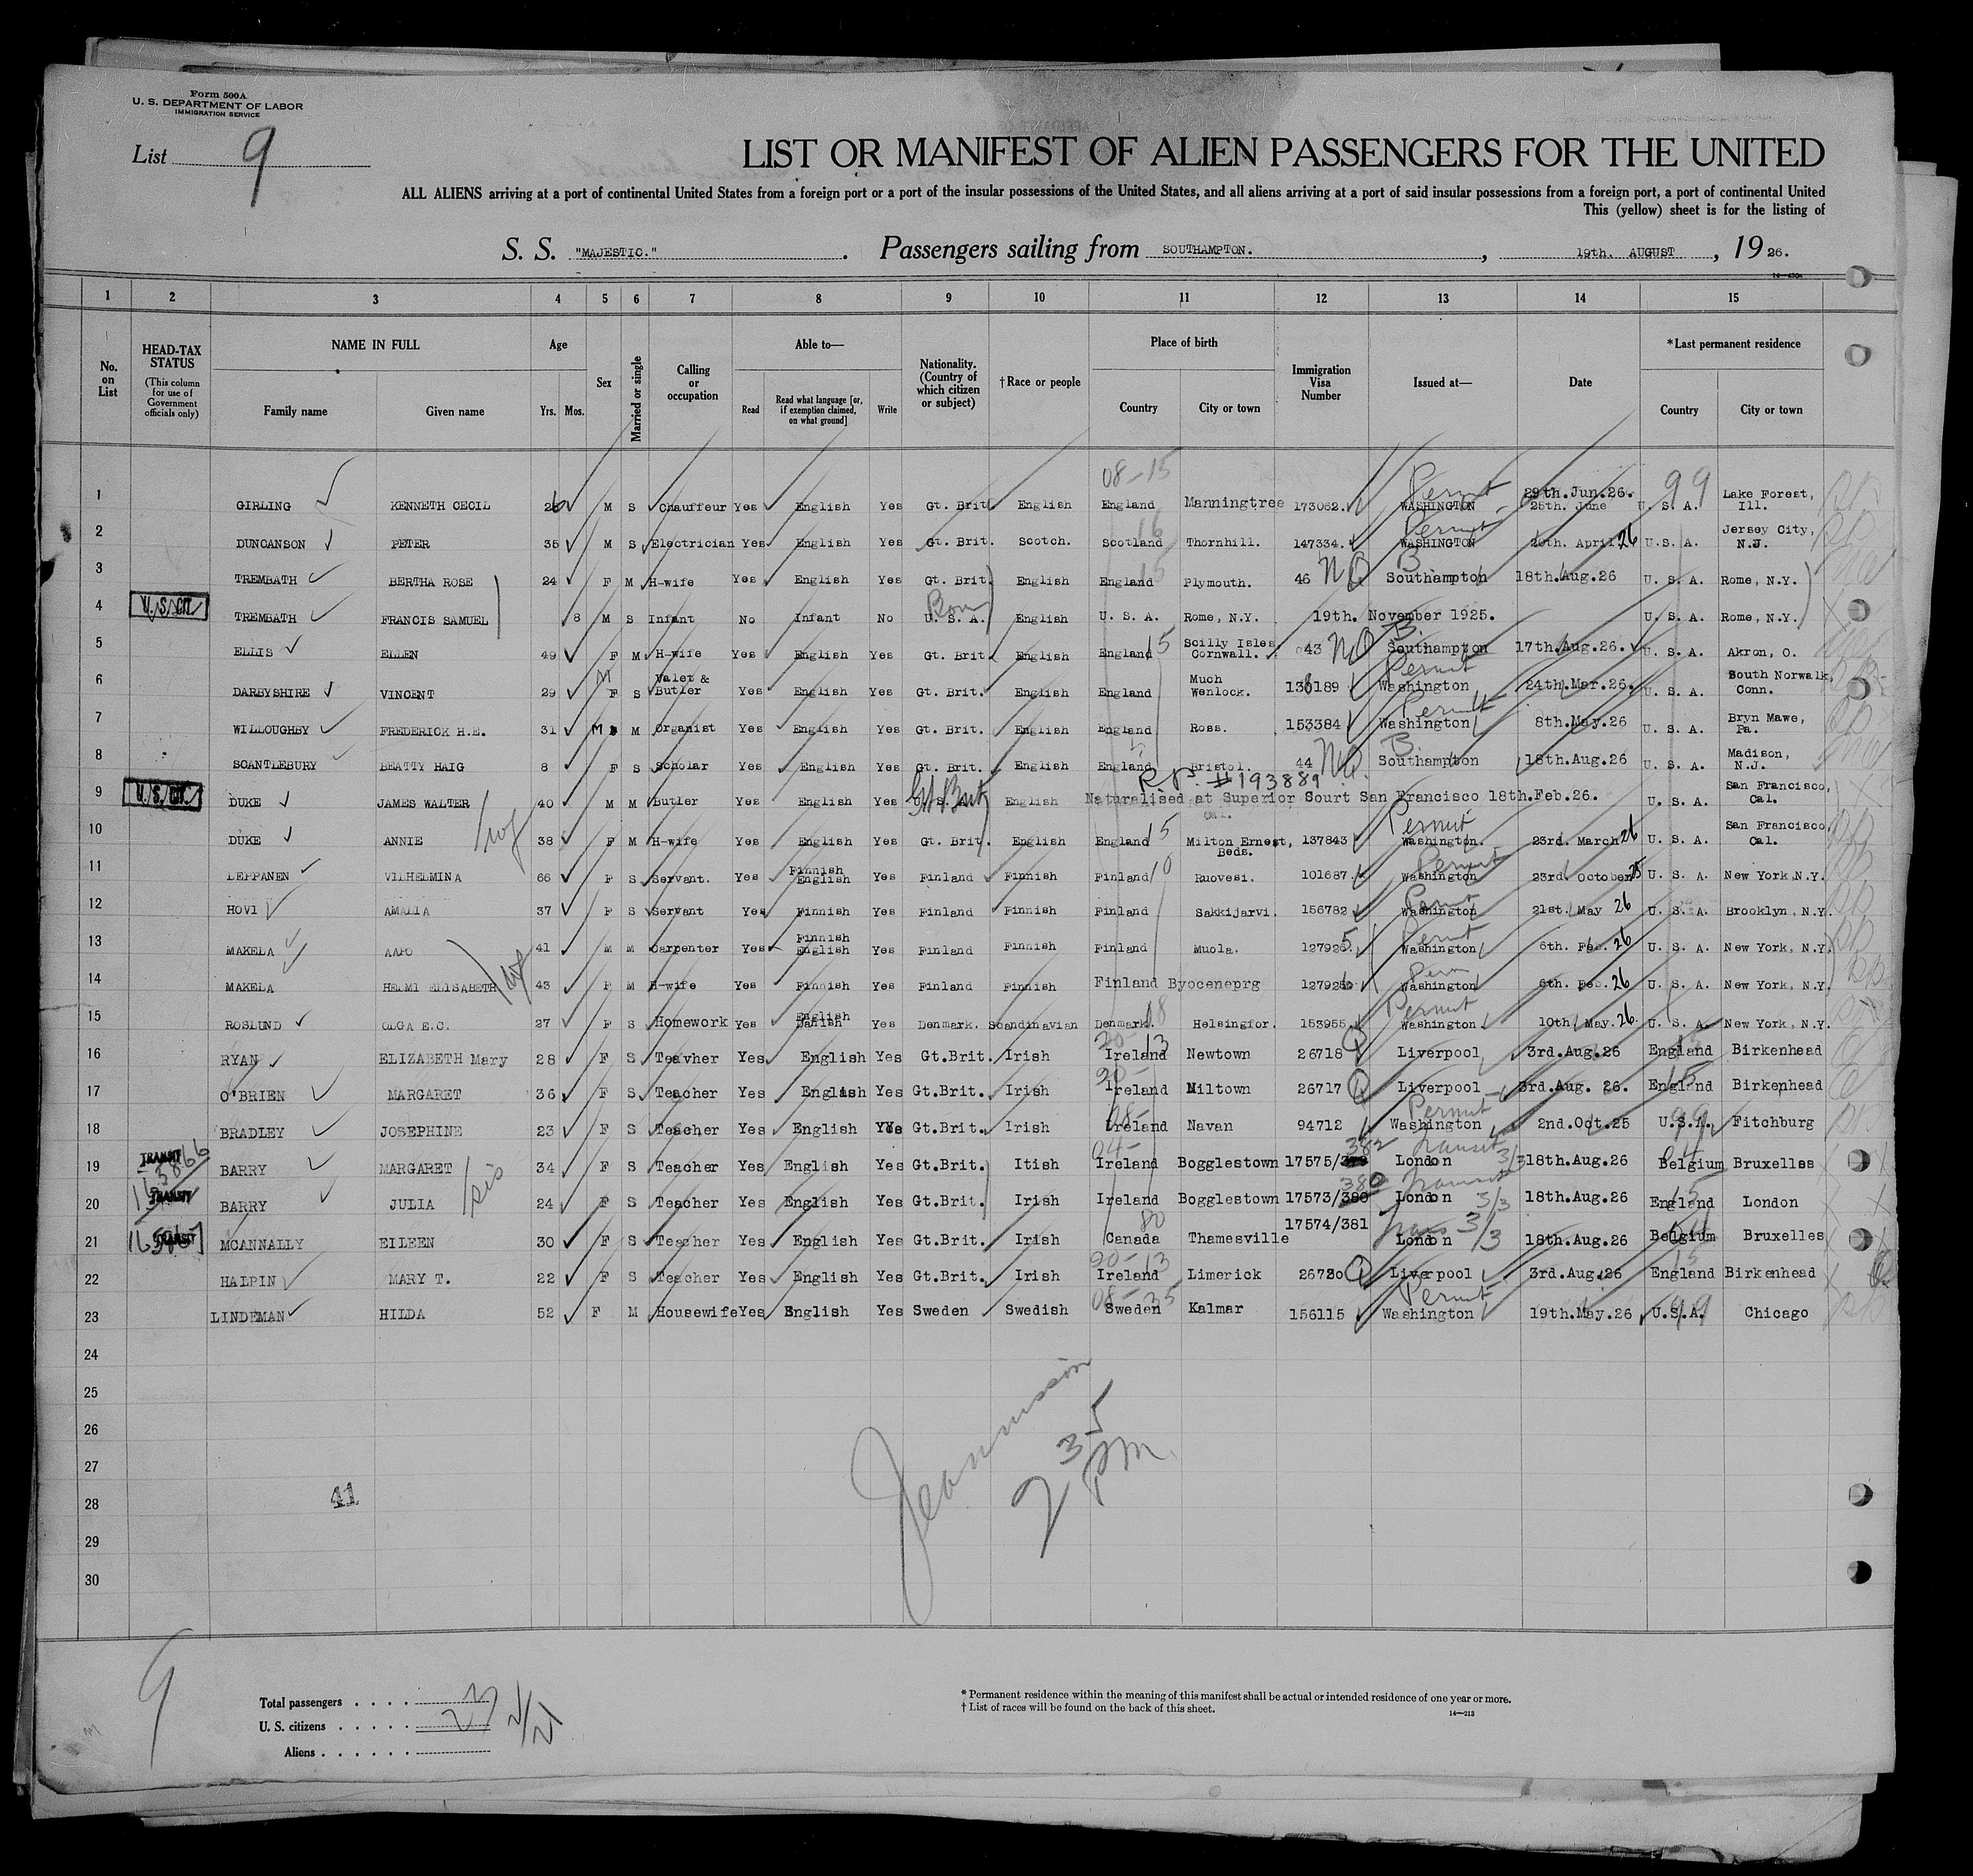 Form 500A
U. S. DEPARTMENT OF LABOR
IMMIGRATION SERVICE
List 9
LIST OR MANIFEST OF ALIEN PASSENGERS FOR THE UNITED
ALL ALIENS arriving at a port of continental United States from a foreign port or a port of the insular possessions of the United States, and all aliens arriving at a port of said insular possessions from a foreign port, a port of continental United
This (yellow) sheet is for the listing of
S. S. "MAJESTIC." Passengers sailing from SOUTHAMPTON. , 19th. AUGUST , 19 26.
1 2 3 4 5 6 7 8 9 10 11 12 13 14 15
No. on List
HEAD-TAX STATUS (This column for use of Government officials only)
NAME IN FULL Family name Given name
Age Yrs. Mos.
Sex
Married or single
Calling or occupation
Able to— Read Read what language [or, if exemption claimed, on what ground] Write
Nationality. (Country of which citizen or subject)
†Race or people
Place of birth Country City or town
Immigration Visa Number
Issued at—
Date
*Last permanent residence Country City or town
08-15 Permit 29th.Jun.26. 99
1 GIRLING KENNETH CECIL 26 M S Chauffeur Yes English Yes Gt. Brit. English England Manningtree 173062. WASHINGTON 25th. June U. S. A. Lake Forest, Ill.
16 Permit
2 DUNCANSON PETER 35 M S Electrician Yes English Yes Gt. Brit. Scotch. Scotland Thornhill. 147334. WASHINGTON April 26 U.S. A. Jersey City, N.J.
3 TREMBATH BERTHA ROSE 24 F M H-wife Yes English Yes Gt. Brit. English England 15 Plymouth. 46 NQ B. Southampton 18th.Aug.26 U. S. A. Rome, N.Y.
4 U. S. CIT. TREMBATH FRANCIS SAMUEL 8 M S Infant No Infant No Born U. S. A. English U. S. A. Rome, N.Y. 19th. November 1925. U. S. A. Rome, N.Y.
5 ELLIS ELLEN 49 F M H-wife Yes English Yes Gt. Brit. English England 15 Scilly Isles Cornwall. 43 NQ B. Southampton 17th.Aug.26. U. S. A. Akron, O.
6 DARBYSHIRE VINCENT 29 M F S Valet & Butler Yes English Yes Gt. Brit. English England Much Wenlock. 136189 Permit Washington 24th.Mar.26. U. S. A. South Norwalk, Conn.
7 WILLOUGHBY FREDERICK H.E. 31 M M Organist Yes English Yes Gt. Brit. English England Ross. 153384 Permit Washington 8th.May.26 U. S. A. Bryn Mawe, Pa.
8 SCANTLEBURY BEATTY HAIG 8 F S Scholar Yes English Yes Gt. Brit. English England Bristol. 44 NQ. B. Southampton 18th.Aug.26 U. S. A. Madison, N.J.
R.P. #193889
9 U. S. CIT. DUKE JAMES WALTER 40 M M Butler Yes English Yes Gt Brit U. S. A. English Naturalised at Superior Sourt San Francisco 18th.Feb.26. U. S. A. San Francisco, Cal.
Cal.
10 DUKE ANNIE 38 F M H-wife Yes English Yes Gt. Brit. English England 15 Milton Ernest, Beds. 137843 Permit Washington. 23rd. March 26 U. S. A. San Francisco, Cal.
11 LEPPANEN VILHELMINA 66 F S Servant. Yes Finnish English Yes Finland Finnish Finland 10 Ruovesi. 101687. Permit Washington 23rd. October 25 U. S. A. New York, N.Y.
12 HOVI AMALIA 37 F S Servant Yes Finnish Yes Finland Finnish Finland Sakkijarvi. 156782 Permit Washington 21st. May 26 U. S. A. Brooklyn, N.Y.
13 MAKELA AAPO 41 M M Carpenter Yes Finnish English Yes Finland Finnish Finland Muola. 127925 Permit Washington 6th. Feb. 26 U. S. A. New York, N.Y.
14 MAKELA HELMI ELISABETH 43 F M H-wife Yes Finnish Yes Finland Finnish Finland Byoceneprg 127926 Perm Washington 6th. Feb. 26 U. S. A. New York, N.Y.
15 ROSLUND OLGA E.C. 27 F S Homework Yes English Danish Yes Denmark. Scandinavian Denmark. 08 Helsingfor. 153955 Permit Washington. 10th May. 26. U. S. A. New York, N.Y.
16 RYAN ELIZABETH Mary 28 F S Teavher Yes English Yes Gt.Brit. Irish 20-13 Ireland Newtown 26718 Q Liverpool 3rd.Aug.26 England 15 Birkenhead
17 O'BRIEN MARGARET 36 F S Teacher Yes English Yes Gt.Brit. Irish 20- Ireland Miltown 26717 Q Liverpool 3rd.Aug. 26. England 15 Birkenhead
18 BRADLEY JOSEPHINE 23 F S Teacher Yes English Yes Gt.Brit. Irish 08- Ireland Navan 94712 Permit Washington 2nd.Oct.25 U.S.A. 99 Fitchburg
19 TRANSIT BARRY MARGARET sis 34 F S Teacher Yes English Yes Gt.Brit. Itish 04- Ireland Bogglestown 17575/382 Transit London 3/3 18th.Aug.26 Belgium 04 Bruxelles
20 TRANSIT BARRY JULIA 24 F S Teacher Yes English Yes Gt.Brit. Irish Ireland Bogglestown 17573/380 Transit London 3/3 18th.Aug.26 England 15 London
21 TRANSIT MCANNALLY EILEEN 30 F S Teacher Yes English Yes Gt.Brit. Irish 80 Canada Thamesville 17574/381 Trans 3/3 London 18th.Aug.26 Belgium 04 Bruxelles
22 HALPIN MARY T. 22 F S Teacher Yes English Yes Gt.Brit. Irish 20-13 Ireland Limerick 26720 Q Liverpool 3rd.Aug.26 England 15 Birkenhead
23 LINDEMAN HILDA 52 F M Housewife Yes English Yes Sweden Swedish 08-35 Sweden Kalmar 156115 Permit Washington 19th.May.26 U.S.A. 99 Chicago
24
25
26
27
28 41
29
30
2 35 PM
9
Total passengers . . . . 23
U. S. citizens . . . . .
Aliens . . . . . .
2/21
* Permanent residence within the meaning of this manifest shall be actual or intended residence of one year or more.
† List of races will be found on the back of this sheet.
14—213